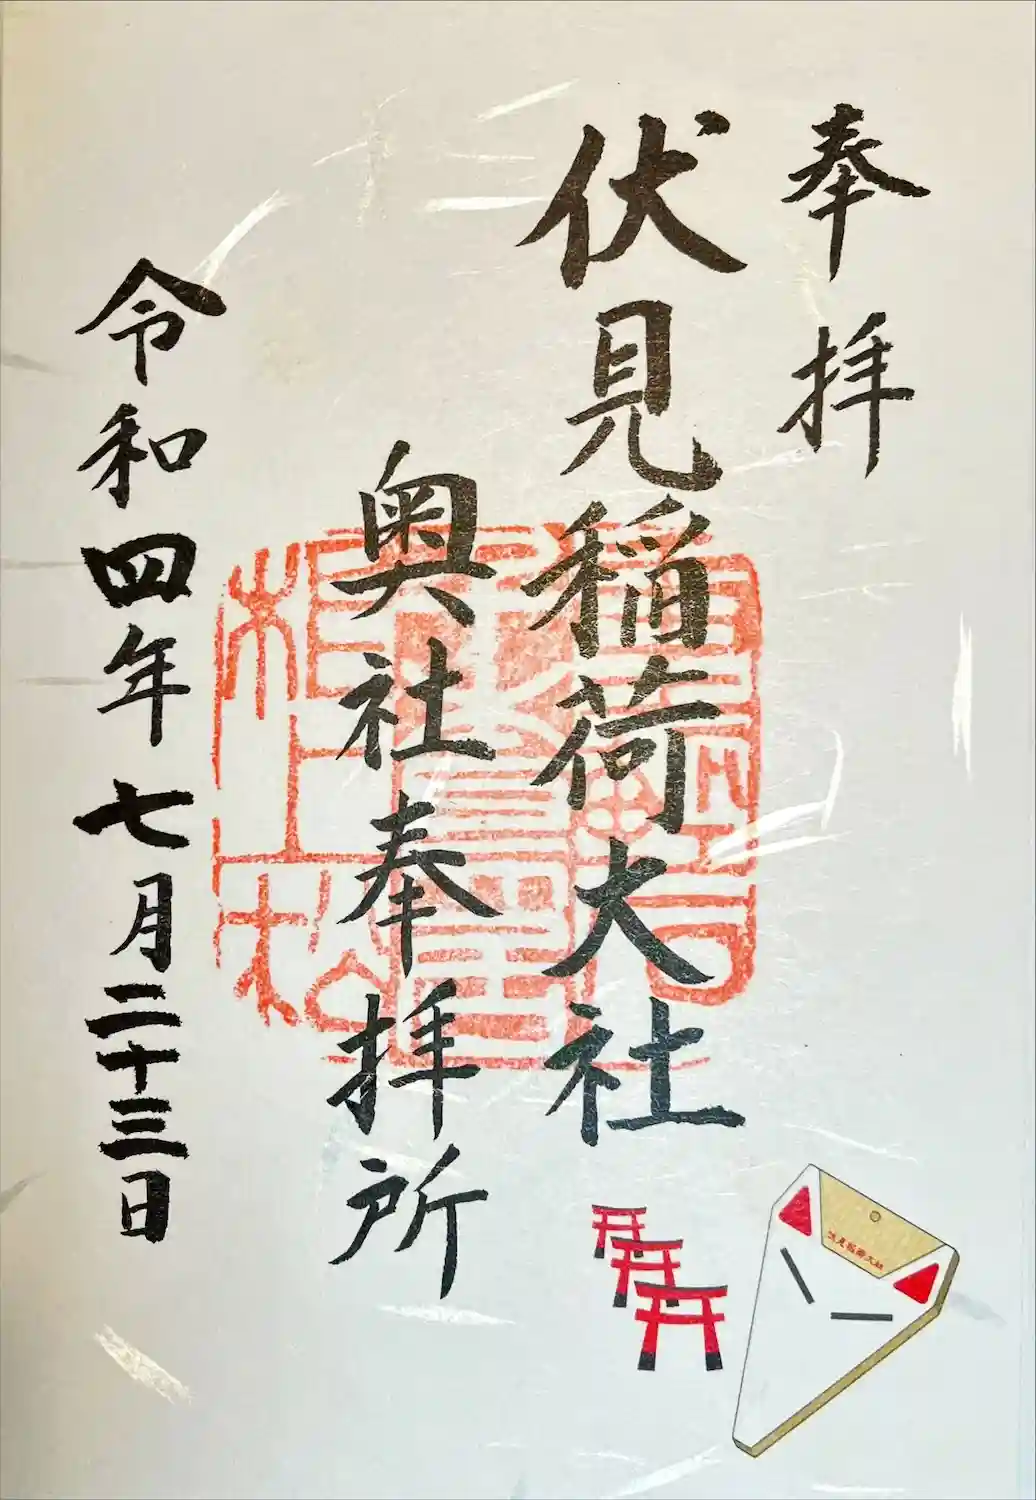 奉拝
伏見稲荷大社
奥社奉拝所
令和四年七月二十三日
伏見稲荷大社